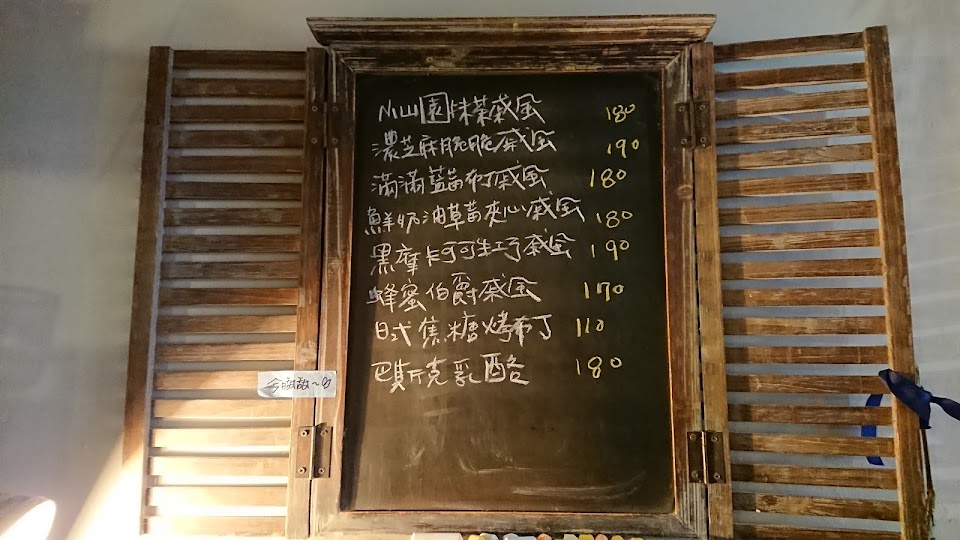 小山園抹茶戚風 180
濃芝麻脆脆戚風 190
滿滿藍莓布丁戚風 180
鮮奶油草莓夾心戚風 180
黑摩卡可可生巧戚風 190
蜂蜜伯爵戚風 170
日式焦糖烤布丁 110
巴斯克乳酪 180